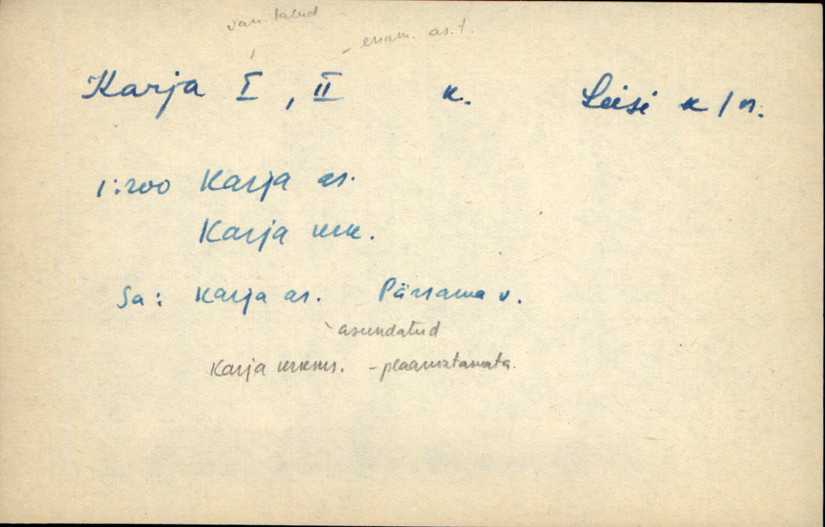 van. talud
- enam. as. t.
Karja I, II k. Leisi k/n.
1:200 Karja as.
Karja mk.
Sa: Karja as. Pärsama v.
asundatud
Karja - plaanistamata.